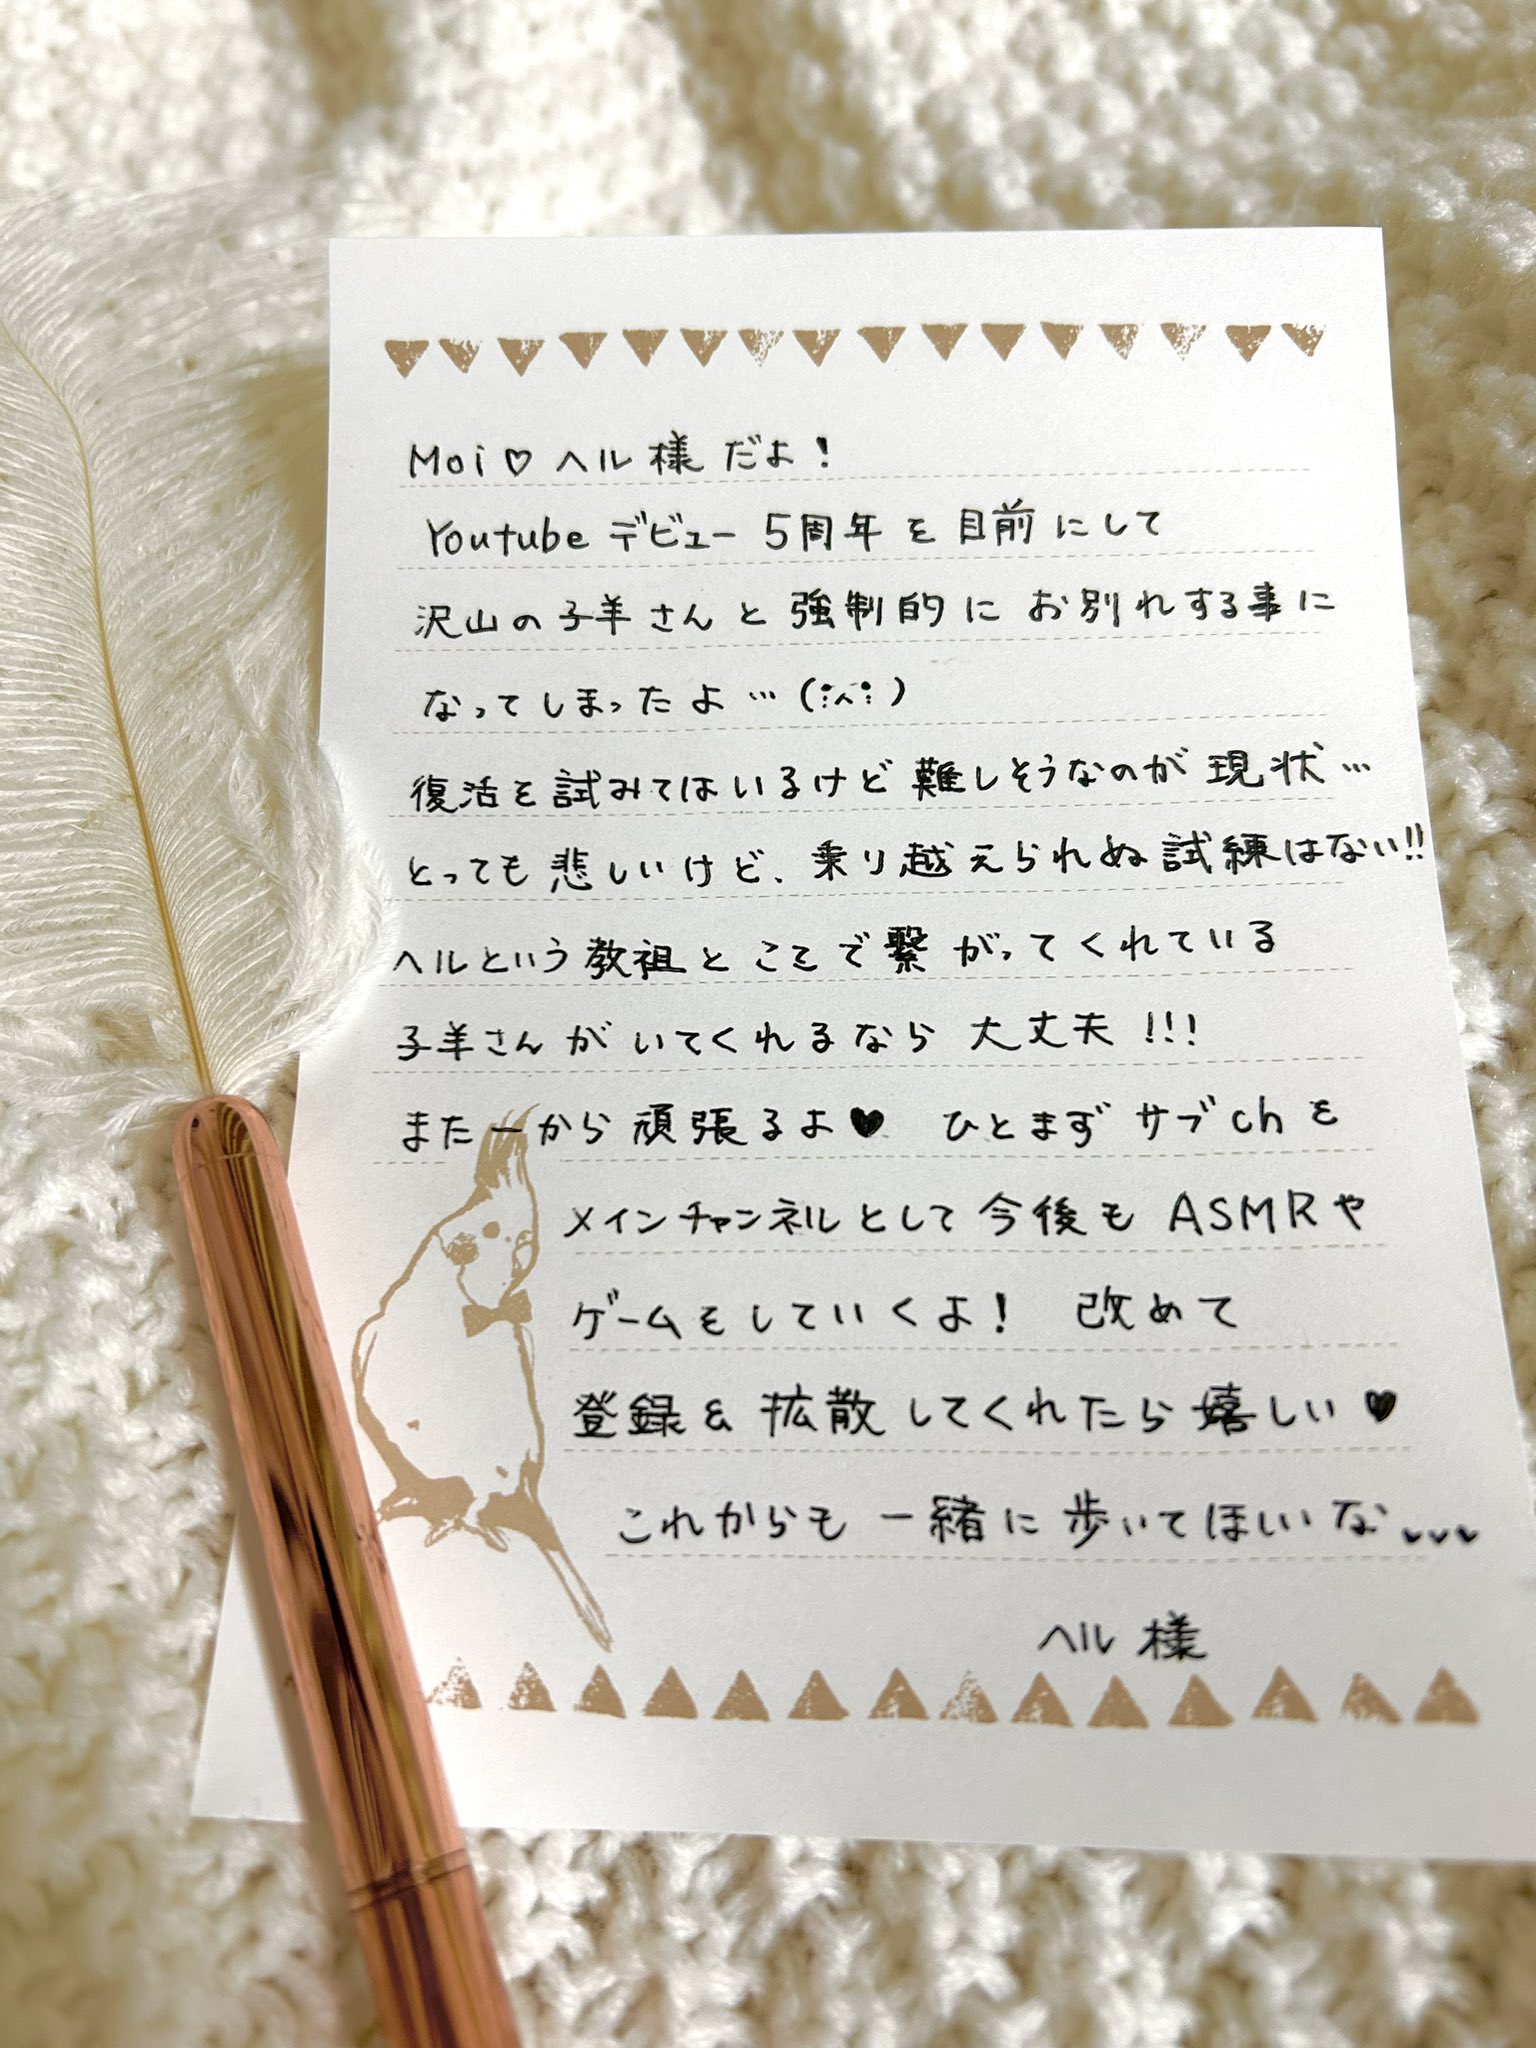 Moi♡ヘル様だよ!
Youtubeデビュー5周年を目前にして
沢山の子羊さんと強制的にお別れする事に
なってしまったよ…(;^;)
復活を試みてはいるけど難しそうなのが現状…
とっても悲しいけど、乗り越えられぬ試練はない!!
ヘルという教祖とここで繋がってくれている
子羊さんがいてくれるなら大丈夫!!!
また一から頑張るよ♥ ひとまずサブchを
メインチャンネルとして今後もASMRや
ゲームをしていくよ! 改めて
登録&拡散してくれたら嬉しい♥
これからも一緒に歩いてほしいな
ヘル様